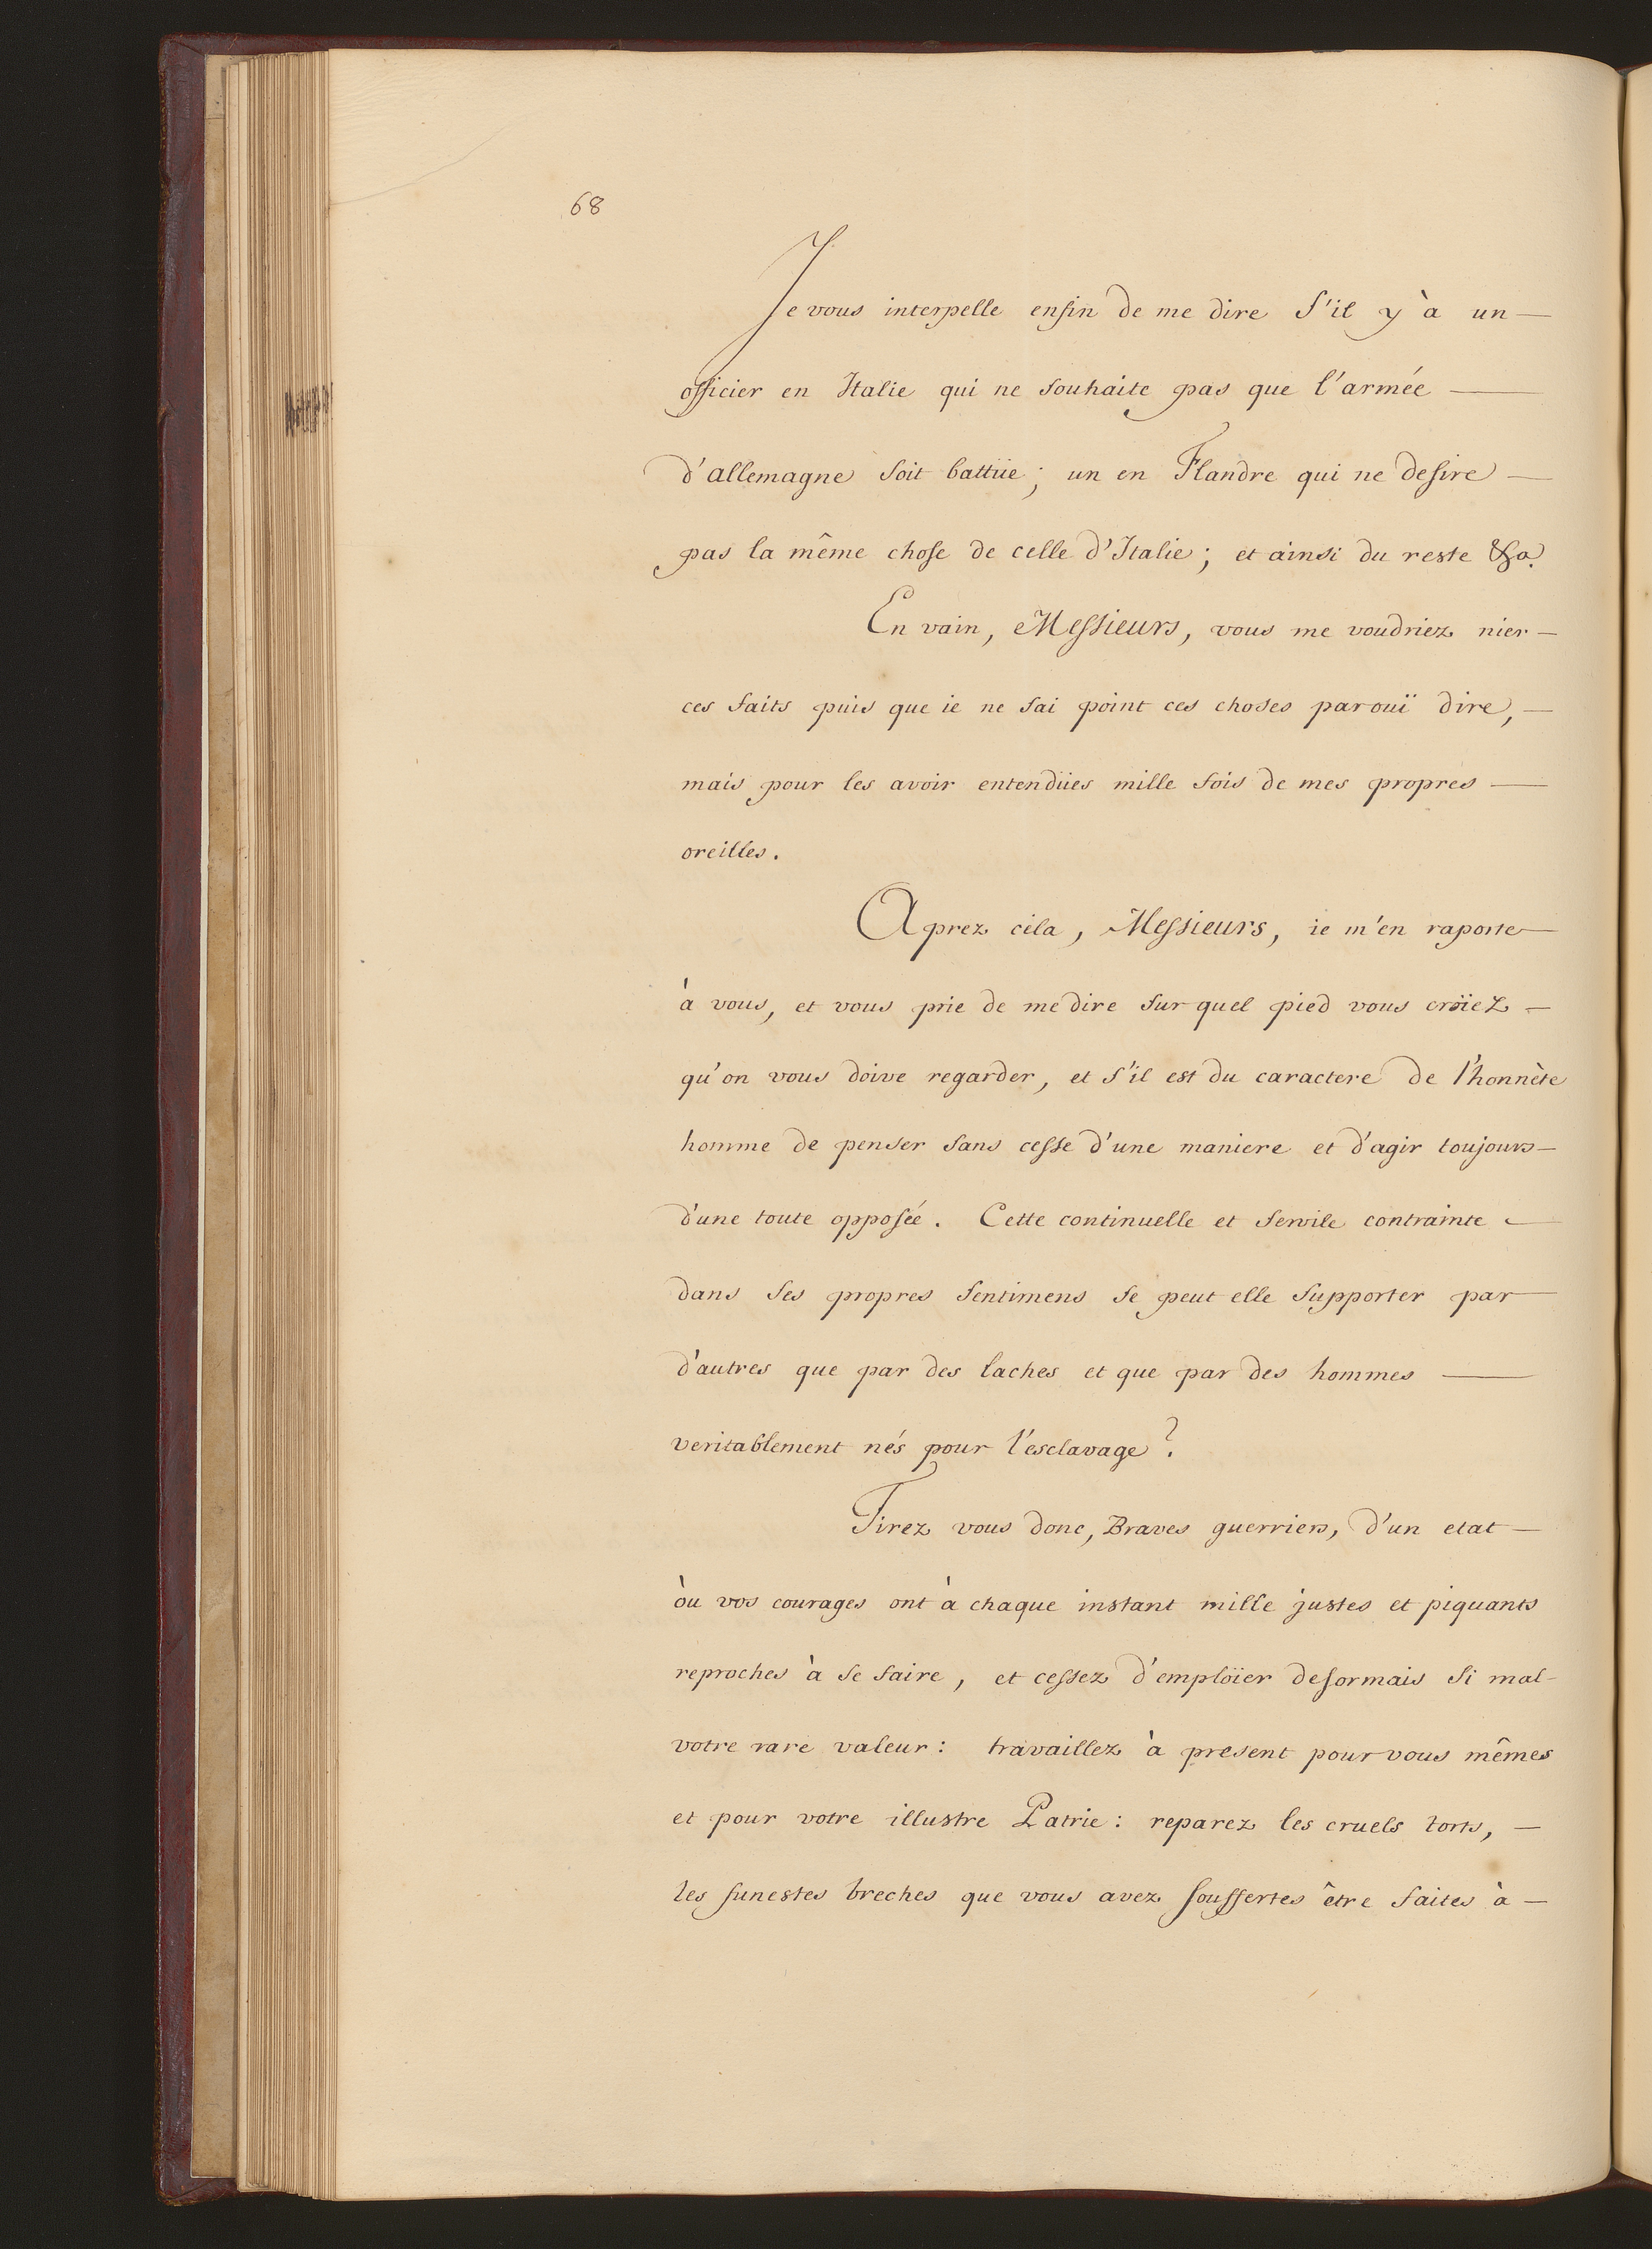 68
Je vous interpelle enfin de me dire s'il y à un —
officier en Italie qui ne souhaite pas que l'armée —
d'allemagne soit battüe; un en Flandre qui ne desire —
pas la même chose de celle d'Italie; et ainsi du reste &a.
En vain, Messieurs, vous me voudriez nier —
ces faits puis que ie ne sai point ces choses par ouï dire, —
mais pour les avoir entendües mille fois de mes propres —
oreilles.
Aprez cela, Messieurs, ie m'en raporte —
à vous, et vous prie de me dire sur quel pied vous croïez —
qu'on vous doive regarder, et s'il est du caractere de l'honnète
homme de penser sans cesse d'une maniere et d'agir toujours —
d'une toute opposée. Cette continuelle et servile contrainte —
dans ses propres sentimens se peut elle supporter par —
d'autres que par des laches et que par des hommes —
veritablement nés pour l'esclavage?
Tirez vous donc, Braves guerriers, d'un etat —
òu vos courages ont à chaque instant mille justes et piquants
reproches à se faire, et cessez d'emploïer desormais si mal —
votre rare valeur: travaillez à present pour vous mêmes
et pour votre illustre Patrie: reparez les cruels torts, —
les funestes breches que vous avez souffertes être faites à —